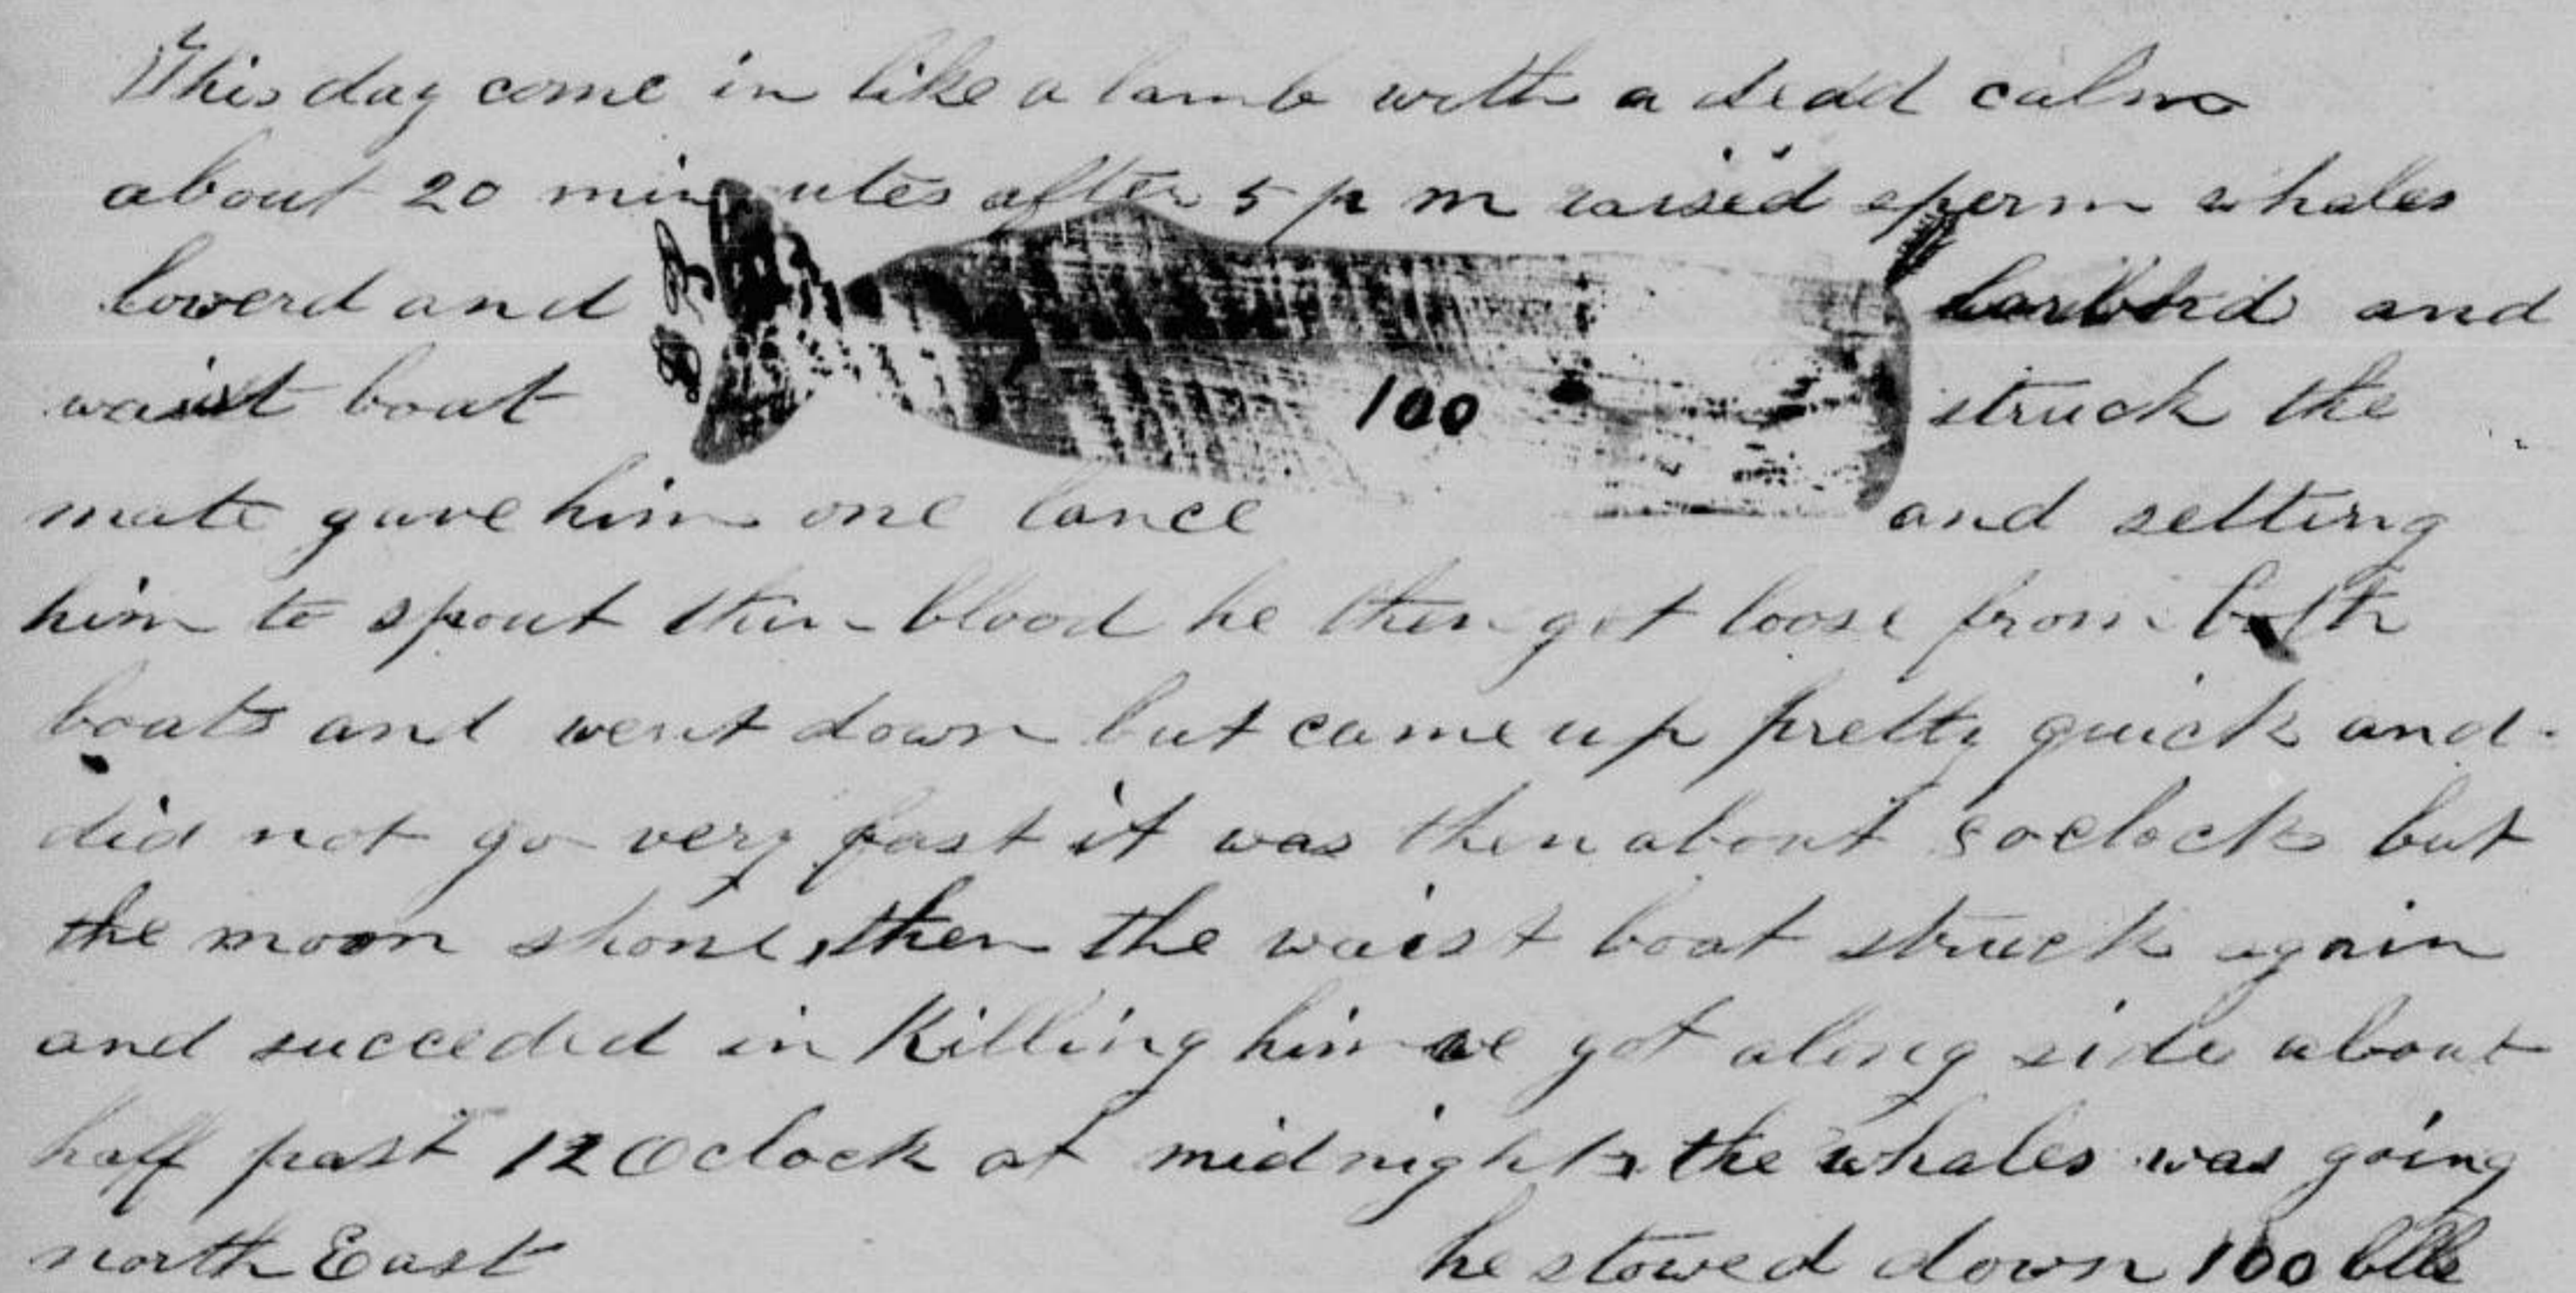 This day come in like a lamb with a dead calm
about 20 minutes after 5 pm raised sperm whales
lowerd and larbord and
waist boat struck the
100
mate gave him one lance and setting
him to spout thin blood he then got loose from both
boats and went down but came up pretty quick and
did not go very fast it was then about 8 oclock but
the moon shone, then the waist boat struck again
and succeeded in Killing him we got along side about
half past 12 Oclock at midnight the whales was going
north East he stowed down 100 blls